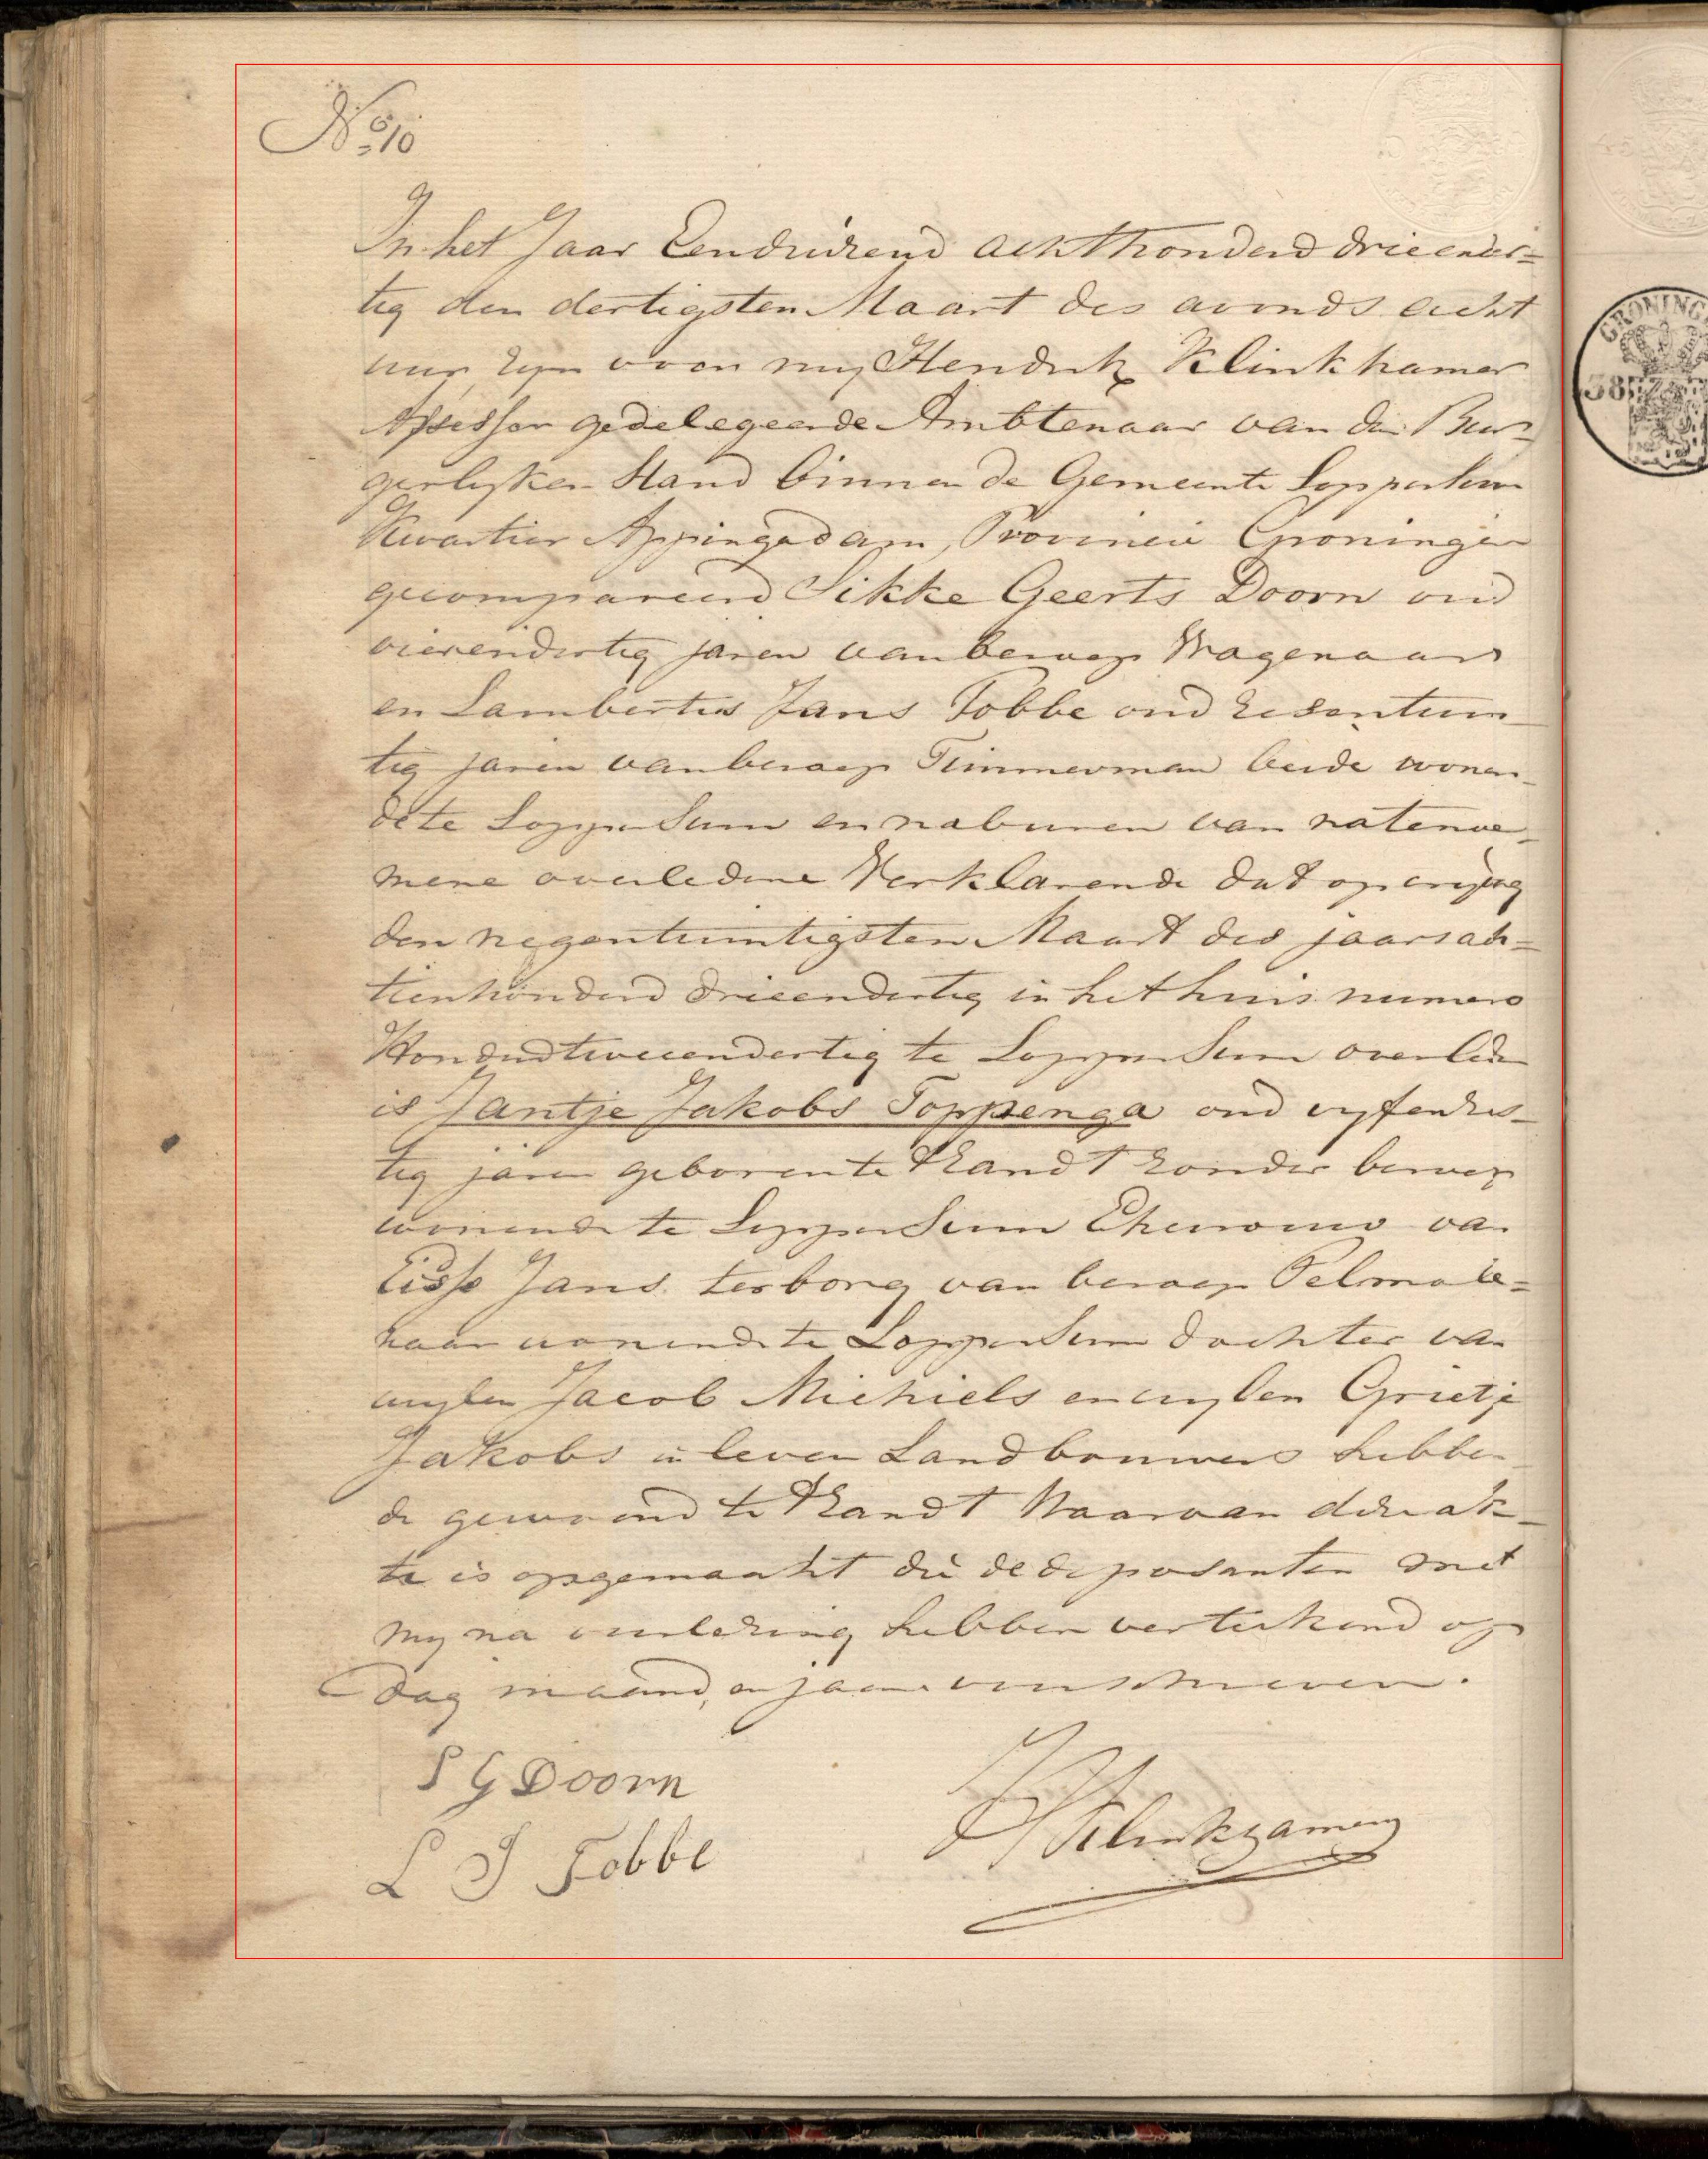 No. 10
In het Jaar Eenduizend achthonderd drieender=
tig den dertigsten Maart des avonds acht
uur, zyn voor my Hendrik Klinkhamer
Assessor gedelegeerde Ambtenaar van den Bur=
gerlyken Stand binnen de Gemeente Loppersum
Kwartier Appingadam, Provincie Groningen
gecompareerd Sikke Geerts Doorn oud
vierendertig jaren van beroep Wagenaar
en Lambertus Jans Tobbe oud zesentwin
tig jaren van beroep Timmerman beide wonen
de te Loppersum en naburen van natenoe
mene overledene Verklarende dat op
den negentwintigsten Maart des jaars ach=
tienhonderd drieendertig in het huis numero
Honderdtweeendertig te Loppersum overleden
is Jantje Jakobs Toppenga oud vyfenzes
tig jaren geboren te Zandt zonder beroep
wonende te Loppersum Ehevrouw van
Eisse Jans terborg van beroep Pelmole=
naar wonende te Loppersum dochter van
wylen Jacob Michiels en wylen Grietje
Jakobs in leven Landbouwers hebben
de gewoond te Zandt Waarvan deze ak
te is opgemaakt die de deposanten met
my na voorlezing hebben vertekend op
dag maand, en jaar voorschreven.
S G Doorn
L J Tobbe
H Klinkhamer
GRONING
38